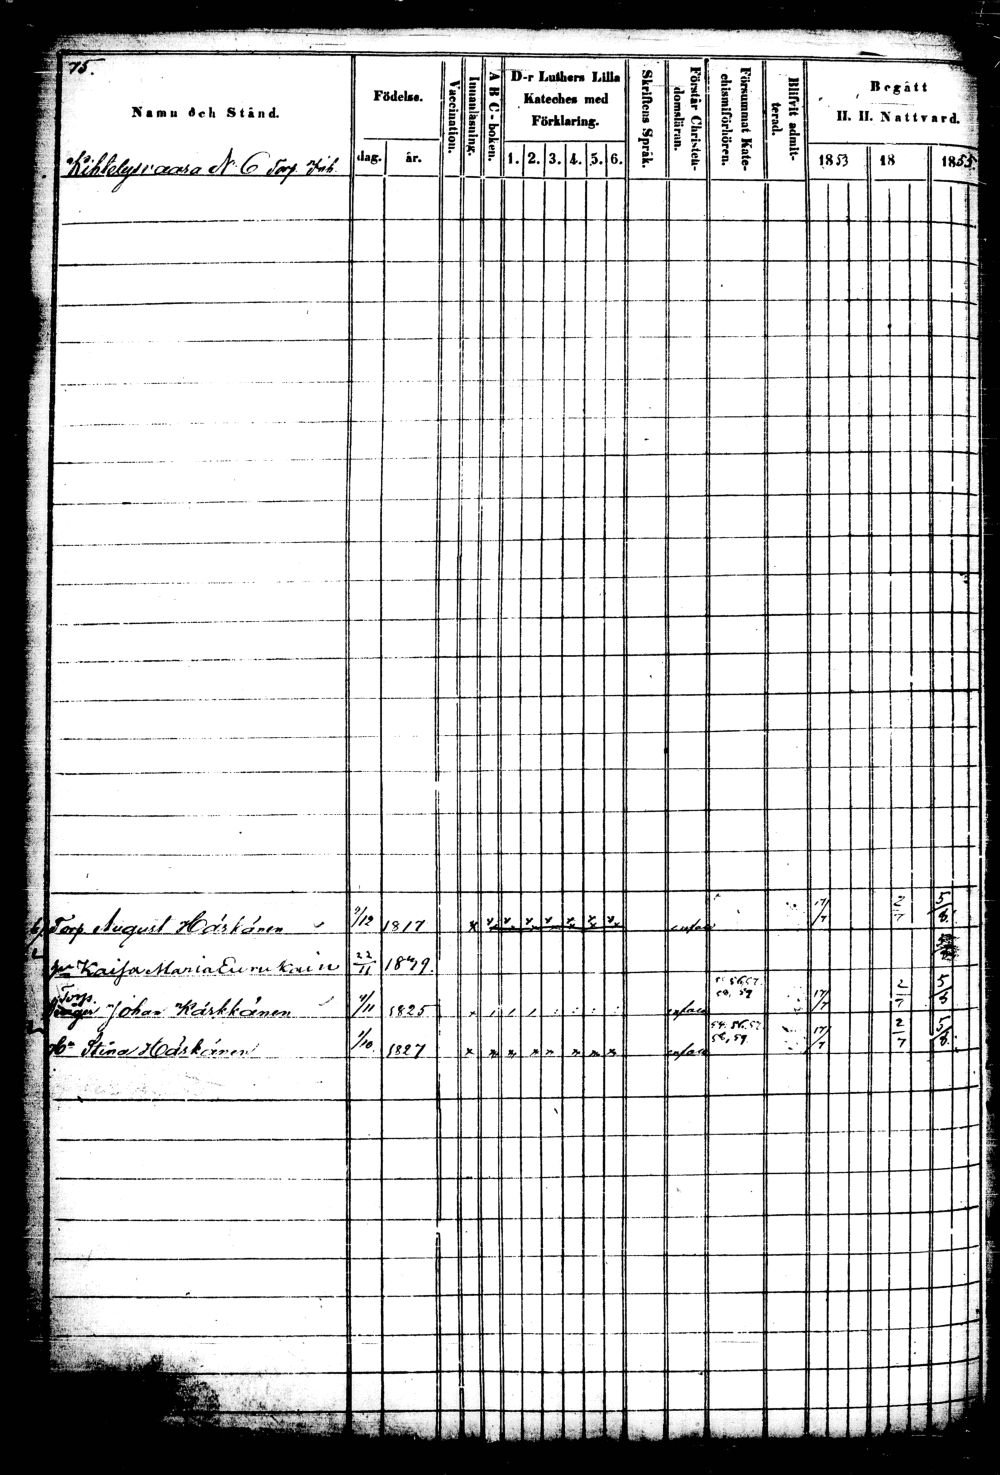 75.
Namn och Stånd.
Födelse.
dag. år.
Vaccination.
Innanläsning.
A B C-boken.
D-r Luthers Lilla
Kateches med
Förklaring.
1. 2. 3. 4. 5. 6.
Skriftens Språk.
Förstår Christen-
domsläran.
Försummat Kate-
chismiförhören.
Blifvit admit-
terad.
Begått
H. H. Nattvard.
1853 18 1855
Kihtelysvaara N:o 6 Torp. Inh.
Torp August Häskänen 1817 17/7 2/7 5/8
Kaisa Maria 22/11
Torp.
Johan Kärkkänen 1825 56, 57, 58, 59 17/7 2/7 5/8
Hu Stina Häskänen 1/10 1827 58, 59 17/7 2/7 5/8